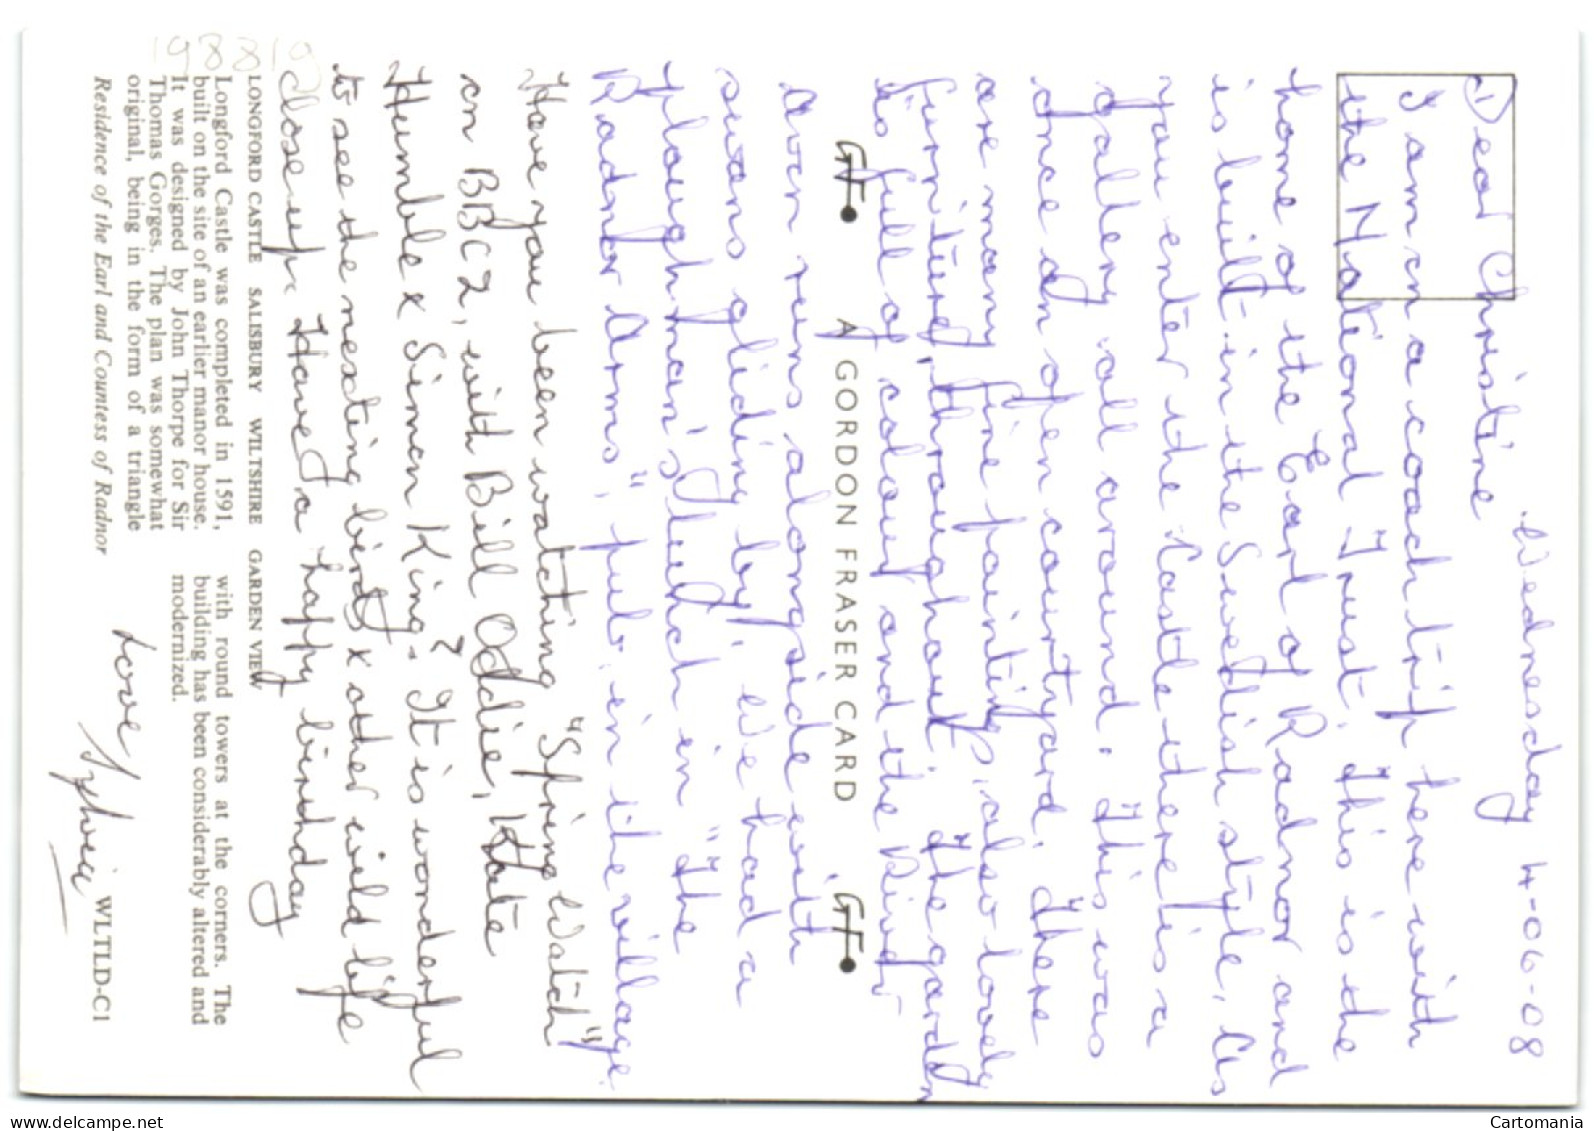 Wednesday 4-06-08
Dear Christine
I am on a coach trip here with
the National Trust. This is the
home of the Earl of Radnor and
is built in the Swedish style. As
you enter the Castle there is a
gallery all around. This was
once an open courtyard. There
are many fine paintings, also lovely
furniture throughout. The garden
is full of colour and the River
A GORDON FRASER CARD
GF GF
Avon runs alongside with
swans gliding by. We had a
ploughman's lunch in "The
Radnor Arms", pub in the village.
Have you been watching "Spring Watch"
on BBC2, with Bill Oddie, Kate
Humble x Simon King? It is wonderful
to see the nesting birds x other wild life
close up. Have a happy birthday
Love Sylvia
1988 19
LONGFORD CASTLE SALISBURY WILTSHIRE GARDEN VIEW
Longford Castle was completed in 1591,
built on the site of an earlier manor house.
It was designed by John Thorpe for Sir
Thomas Gorges. The plan was somewhat
original, being in the form of a triangle
with round towers at the corners. The
building has been considerably altered and
modernized.
Residence of the Earl and Countess of Radnor
WLTLD-C1
www.delcampe.net
Cartomania